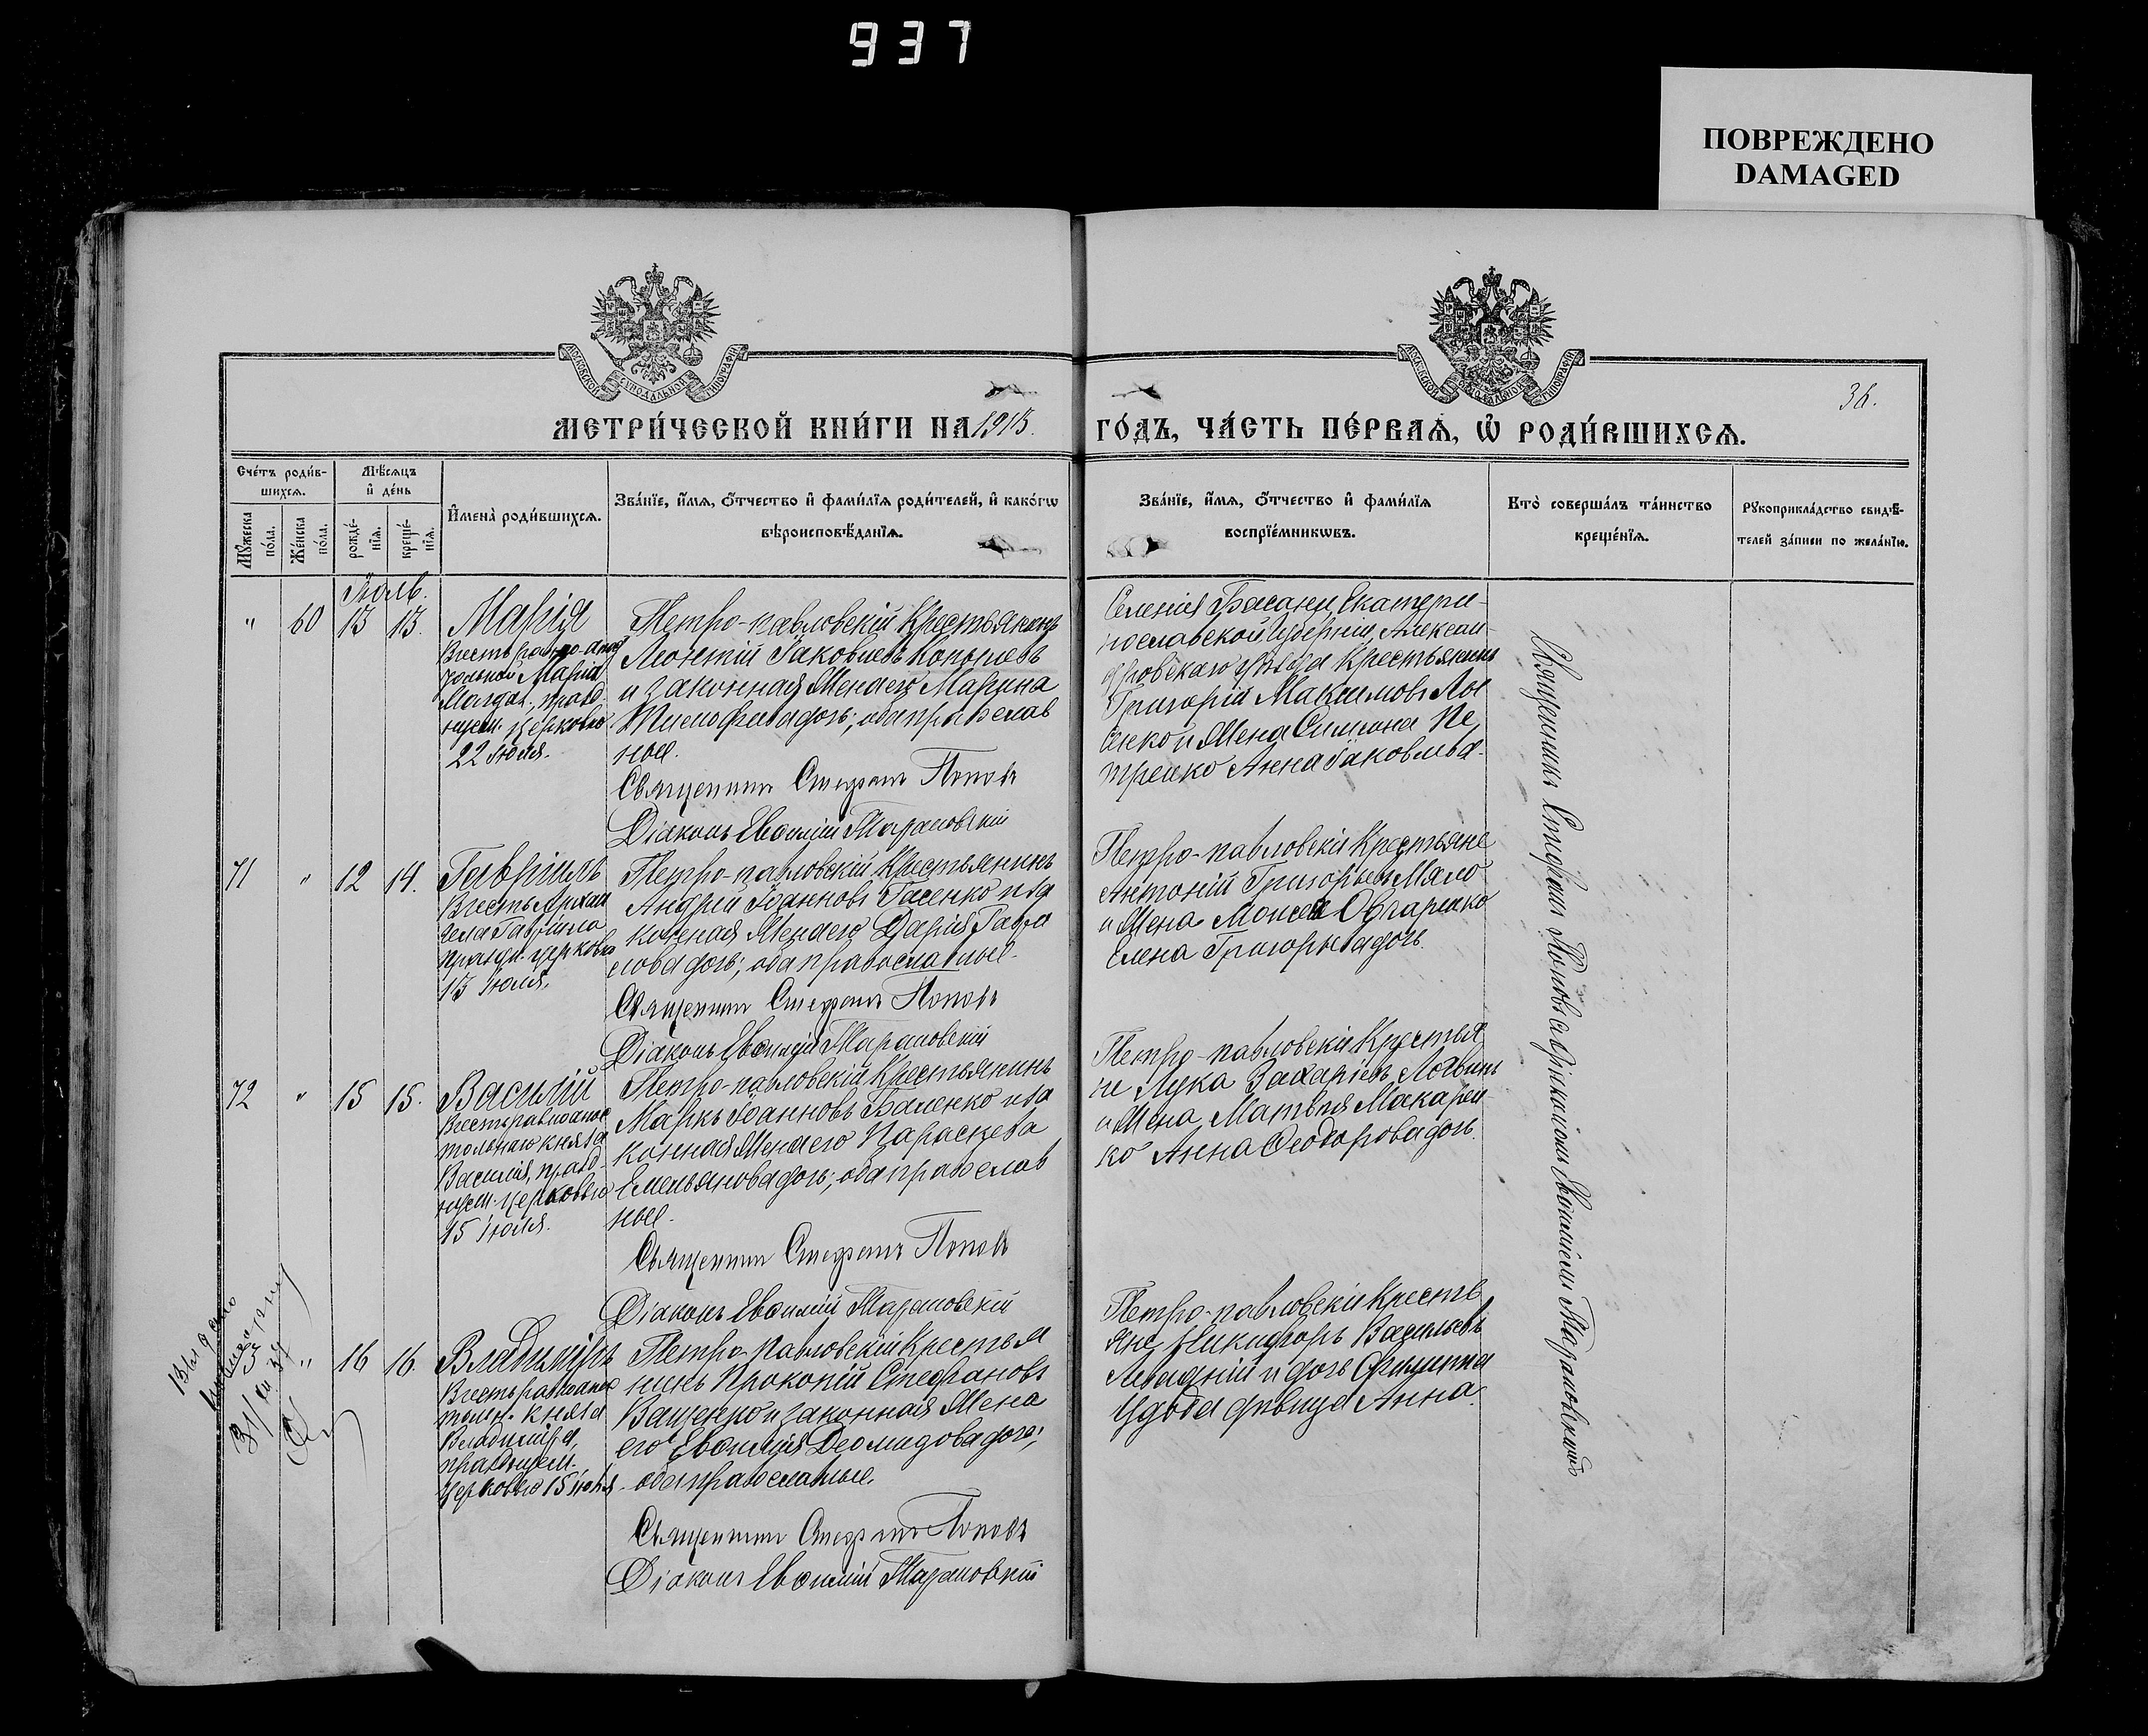 937
ПОВРЕЖДЕНО
DAMAGED
МОСКОВСКОЙ СѴНОДАЛЬНОЙ ТИПОГРАФІИ
МОСКОВСКОЙ СѴНОДАЛЬНОЙ ТИПОГРАФІИ
36.
МЕТРИ́ЧЕСКОЙ КНИ́ГИ НА 1915. ГО́ДЪ, ЧА́СТЬ ПЕ́РВАѦ, Ѡ҆ РОДИ́ВШИХСѦ.
Сче́тъ роди́в-
шихсѧ.
Мꙋ́жеска по́ла.
Же́нска по́ла.
Мѣ́сѧцъ
и҆ де́нь
рожде́-
нїѧ.
креще́-
нїѧ.
И҆мена̀ роди́вшихсѧ.
Зва́нїе, и҆́мѧ, ѻ҆́тчество и҆ фами́лїѧ роди́телей, и҆ како́гѡ
вѣроисповѣ́данїѧ.
Зва́нїе, и҆́мѧ, ѻ҆́тчество и҆ фами́лїѧ
воспрїе́мникѡвъ.
Кто̀ соверша́лъ та́инство
креще́нїѧ.
Рꙋкоприкла́дство свидѣ́-
телей за́писи по жела́нїю.
Іюль.
" 60 13 13. Марія
Въ честь равно-апос
тольной Маріи
Магдал., празд-
нуем. церковью
22 Іюля.
Петро-павловскій Крестьянинъ
Леонтій Іаковлевъ
и законная Жена его Марина
дочь; оба православ
ные.
Священникъ Стефанъ Поповъ
Діаконъ Евѳимій Тарановскій
Селенія Басани, Екатери-
нославской Губерніи, Алексан
дровскаго уѣзда Крестьянинъ
Григорій Максимовъ Лы
сенко и Жена Симона Пе
тренко Анна Іаковлева.
71 " 12 14. Гавріилъ
Въ честь Архан
гела Гавріила
праздн. церковью
13 Іюля.
Петро-павловскій Крестьянинъ
Андрей Іоанновъ Гасенко и за
конная Жена его Дарія Гаври
лова дочь; оба православные.
Священникъ Стефанъ Поповъ
Діаконъ Евѳимій Тарановскій
Петро-павловскіе Крестьяне
Антоній Григорьевъ Мяло
и Жена Моисея Овчаренко
Елена Григорьева дочь.
72 " 15 15. Василій
Въ честь равноапос
тольнаго князя
Василія, празд-
нуем. церковью
15 Іюля.
Петро-павловскій Крестьянинъ
Маркъ Іоанновъ Баченко и за
конная Жена его Параскева
Емельянова дочь; оба православ
ные.
Священникъ Стефанъ Поповъ
Діаконъ Евѳимій Тарановскій
Петро-павловскіе Крестья
не Лука Захаріевъ Логвинъ
и Жена Матвѣя Макарен
ко Анна Ѳеодорова дочь.
" 16 16. Владиміръ
Въ честь равноапос
тольн. князя
Владиміра,
празднуем.
церковью 15 Іюля
Петро-павловскій Крестья
нинъ Прокопій Стефановъ
Ващенко и законная Жена
его Евѳимія Деомидова дочь;
оба православные.
Священникъ Стефанъ Поповъ
Діаконъ Евѳимій Тарановскій
Петро-павловскіе Кресть
яне Никифоръ Васильевъ
и дочь Филиппа
дѣвица Анна.
Священникъ Стефанъ Поповъ съ Діакономъ Евѳиміемъ Тарановскимъ